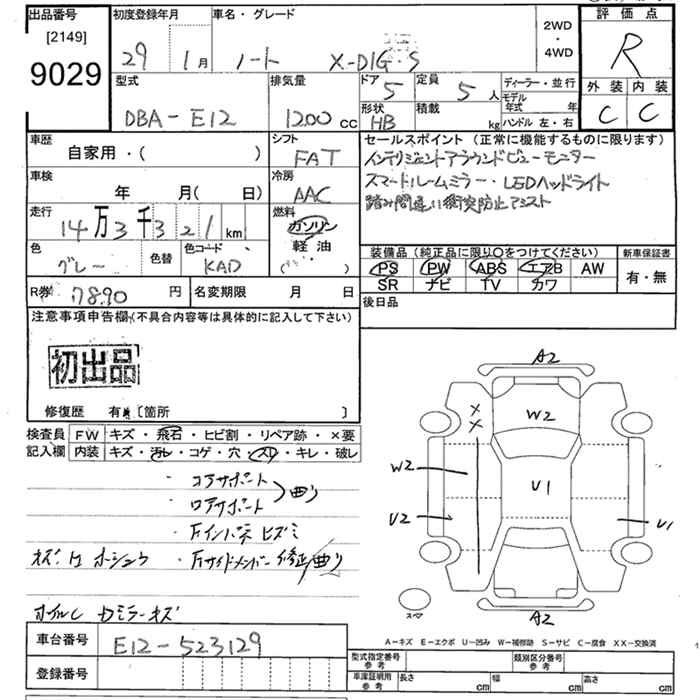 出品番号
[2149]
9029
初度登録年月
29 1月
車名・グレード
ノート X-DIG・S
2WD
・
4WD
評価点
R
外装 内装
C C
型式
DBA-E12
排気量
1200 CC
ドア 5
形状 HB
定員 5 人
積載 kg
ディーラー・並行
モデル年式 年
ハンドル 左・右
車歴
自家用・( )
シフト
FAT
セールスポイント (正常に機能するものに限ります)
インテリジェントアラウンドビューモニター
スマートルームミラー・LEDヘッドライト
踏み間違い衝突防止アシスト
車検
年 月(日 )
冷房
AAC
走行
14万3千321km
燃料
ガソリン
軽油
( )
色
グレー
色替
色コード
KAD
装備品 (純正品に限り○をつけてください)
PS PW ABS エアB AW
SR ナビ TV カワ
新車保証書
有・無
R券 7890 円
名変期限 月 日
後日品
注意事項申告欄(不具合内容等は具体的に記入して下さい)
初出品
修復歴 有 [箇所 ]
検査員記入欄
FW キズ・飛石・ヒビ割・リペア跡・×要
内装 キズ・汚レ・コゲ・穴・スレ・キレ・破レ
・コアサポート
・ロアサポート
曲り
・Fインパネ ヒズミ
・Fサイドメンバー 修正/曲り
車台番号
E12-523129
登録番号
A2
W2
X
X
W2
U1
U2
U1
A2
スペア
A-キズ E-エクボ U-凹み W-補修跡 S-サビ C-腐食 XX-交換済
型式指定番号 参考
類別区分番号 参考
車庫証明用 参考
長さ cm
幅 cm
高さ cm